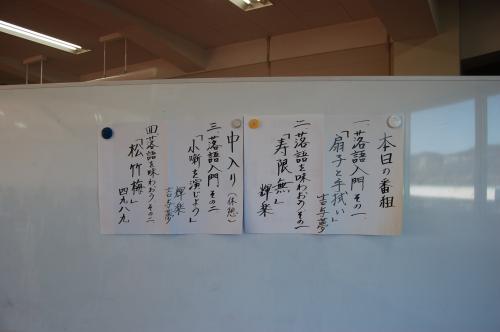 本日の番組
一、落語入門 その一
「扇子と手拭い」
吉与夢
二、落語を味わおう その一
「寿限無」
輝楽
中入り (休憩)
三、落語入門 その二
「小噺を演じよう」
輝楽
吉与夢
四、落語を味わおう その二
「松竹梅」
四九八九